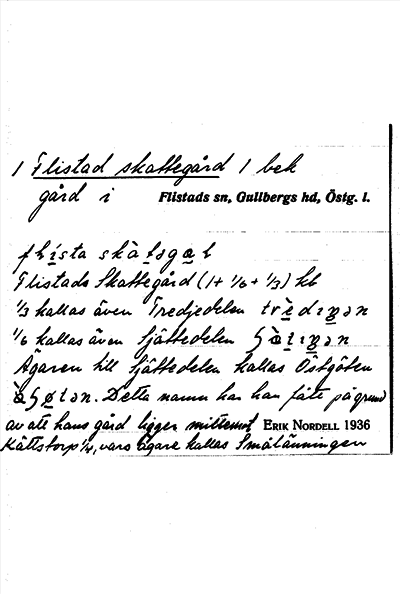 1 Flistad skattegård 1 bek
gård i Flistads sn, Gullbergs hd, Östg. l.
flista
Flistads Skattegård (1 + 1/6 + 1/3) kb
1/3 kallas även Tredjedelen
1/6 kallas även Sjättedelen
Ägaren till Sjättedelen kallas Östgöten
Detta namn har han fått på grund
av att hans gård ligger mittemot ERIK NORDELL 1936
Kättstorp 1/4, vars ägare kallas Smålänningen